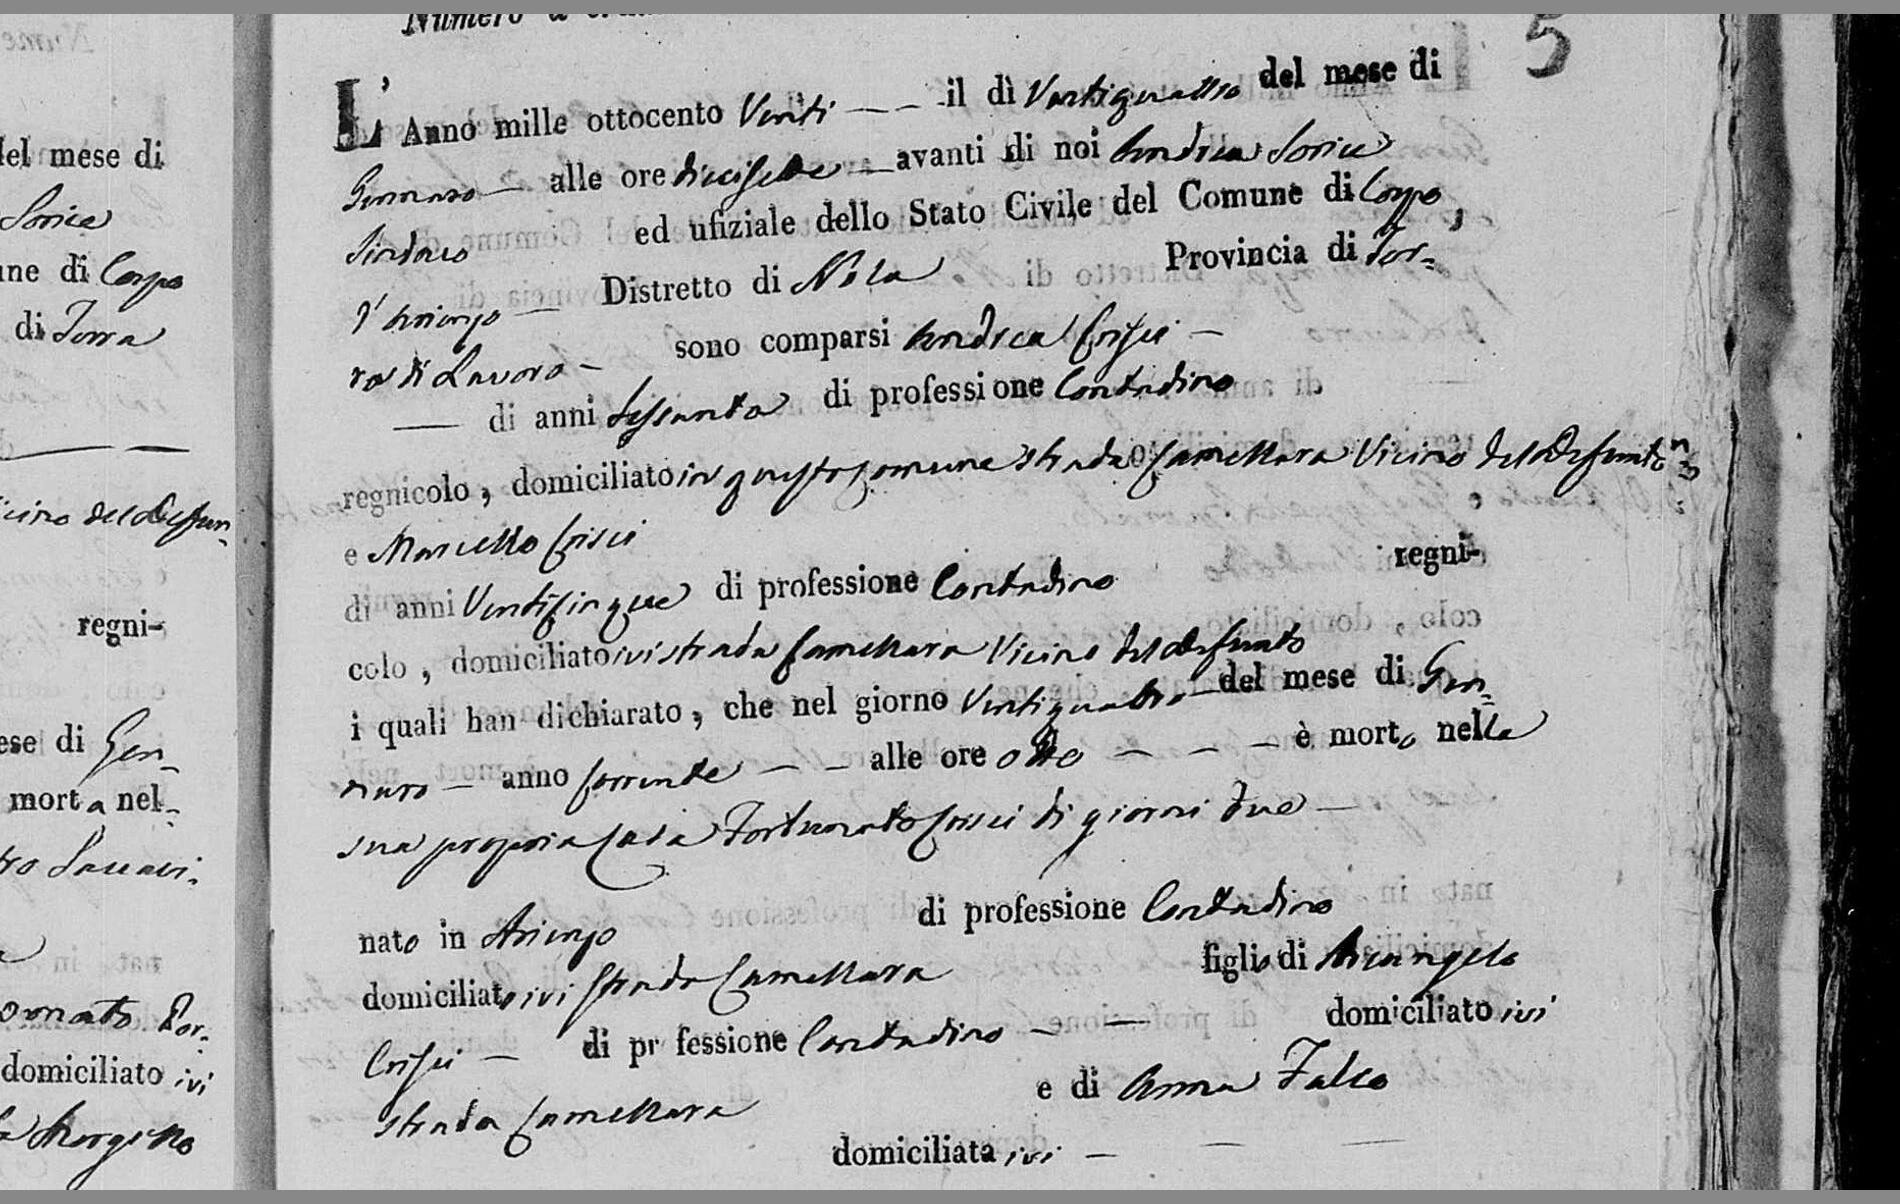 Numero d'
5
L'Anno mille ottocento Venti — — il dì Ventiquattro del mese di
Gennaro — alle ore diecisette — avanti di noi Andrea Sorice
Sindaco ed ufiziale dello Stato Civile del Comune di Corpo
d'Arienzo — Distretto di Nola Provincia di Ter-
ra di Lavoro — sono comparsi Andrea Crisci —
— di anni Sessanta di professione Contadino
regnicolo, domiciliato in questo Comune strada Camellara Vicino del Defunto
e Marcello Crisci
di anni Venticinque di professione Contadino regni-
colo, domiciliato ivi strada Camellara Vicino del defunto
i quali han dichiarato, che nel giorno Ventiquattro del mese di Gen-
naro — anno corrente — — alle ore otto — — — è morto nella
sua propria Casa Fortunato Crisci di giorni due —
nato in Arienzo di professione Contadino
domiciliato ivi strada Camellara figlio di Arcangelo
Crisci — di pr fessione Contadino — — domiciliato ivi
strada Camellara e di Anna Falco
domiciliata ivi —
del mese di
Sorice
ne di Corpo
di Terra
icino del Defun-
regni-
ese di Gen-
morta nel-
domiciliato ivi